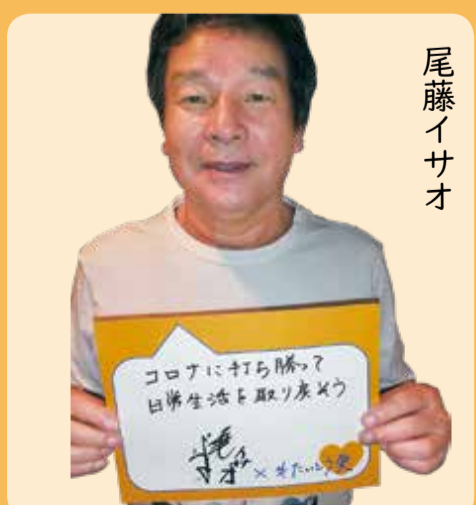 尾藤イサオ
コロナに打ち勝って
日常生活を取り戻そう
×